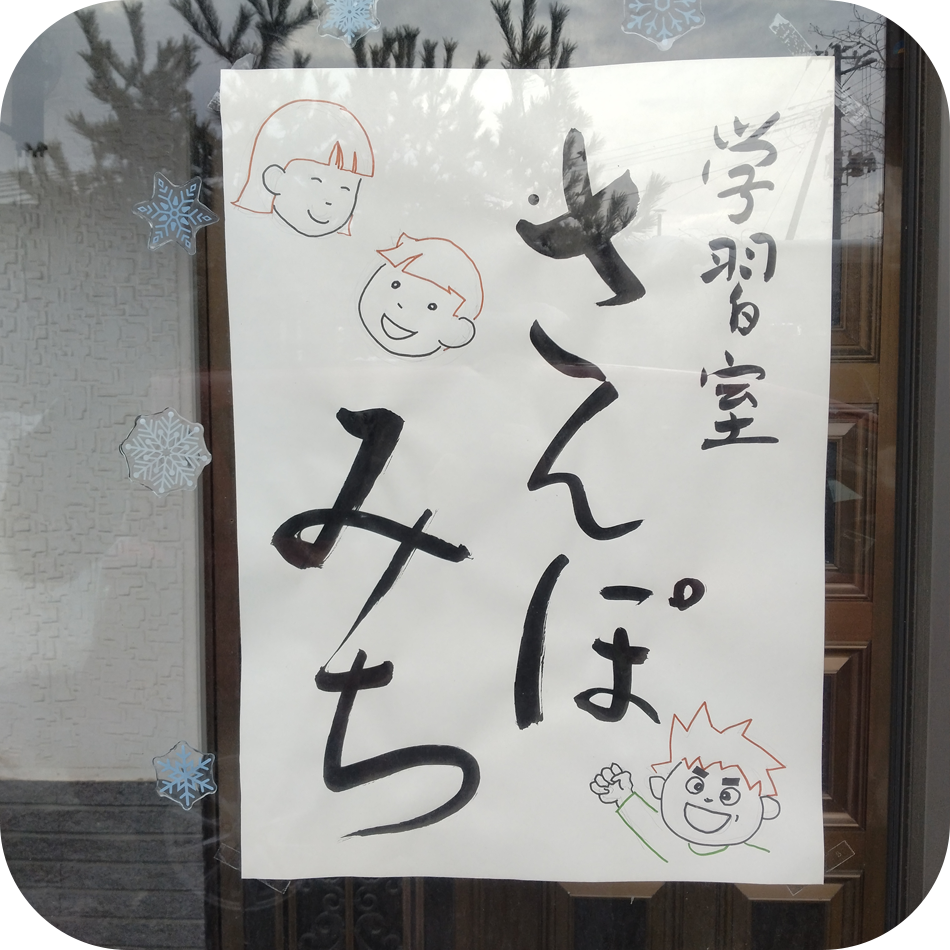 学習室
さんぽ
みち